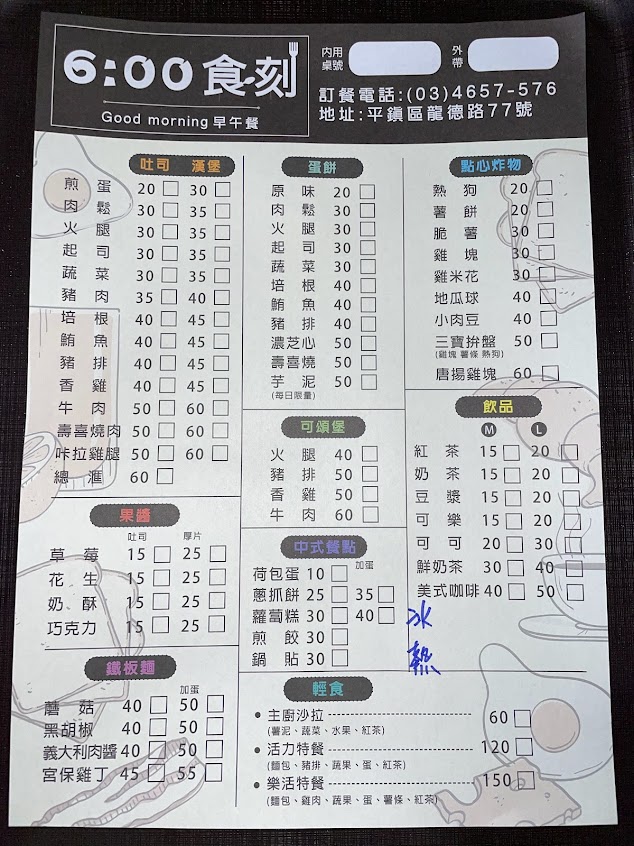 6:00食刻
Good morning 早午餐
內用桌號
外帶
訂餐電話:(03)4657-576
地址:平鎮區龍德路77號
吐司 漢堡
煎蛋 20 30
肉鬆 30 35
火腿 30 35
起司 30 35
蔬菜 30 35
豬肉 35 40
培根 40 45
鮪魚 40 45
豬排 40 45
香雞 40 45
牛肉 50 60
壽喜燒肉 50 60
咔拉雞腿 50 60
總滙 60
果醬
吐司 厚片
草莓 15 25
花生 15 25
奶酥 15 25
巧克力 15 25
鐵板麵
加蛋
蘑菇 40 50
黑胡椒 40 50
義大利肉醬 40 50
宮保雞丁 45 55
蛋餅
原味 20
肉鬆 30
火腿 30
起司 30
蔬菜 30
培根 40
鮪魚 40
豬排 40
濃芝心 50
壽喜燒 50
芋泥 50
(每日限量)
可頌堡
火腿 40
豬排 50
香雞 50
牛肉 60
中式餐點
加蛋
荷包蛋 10
蔥抓餅 25 35
蘿蔔糕 30 40
煎餃 30
鍋貼 30
點心炸物
熱狗 20
薯餅 20
脆薯 30
雞塊 30
雞米花 30
地瓜球 40
小肉豆 40
三寶拚盤 50
(雞塊 薯條 熱狗)
唐揚雞塊 60
飲品
M L
紅茶 15 20
奶茶 15 20
豆漿 15 20
可樂 15 20
可可 20 30
鮮奶茶 30 40
美式咖啡 40 50
冰
熱
輕食
•主廚沙拉 60
(薯泥、蔬菜、水果、紅茶)
•活力特餐 120
(麵包、豬排、蔬果、蛋、紅茶)
•樂活特餐 150
(麵包、雞肉、蔬果、蛋、薯條、紅茶)